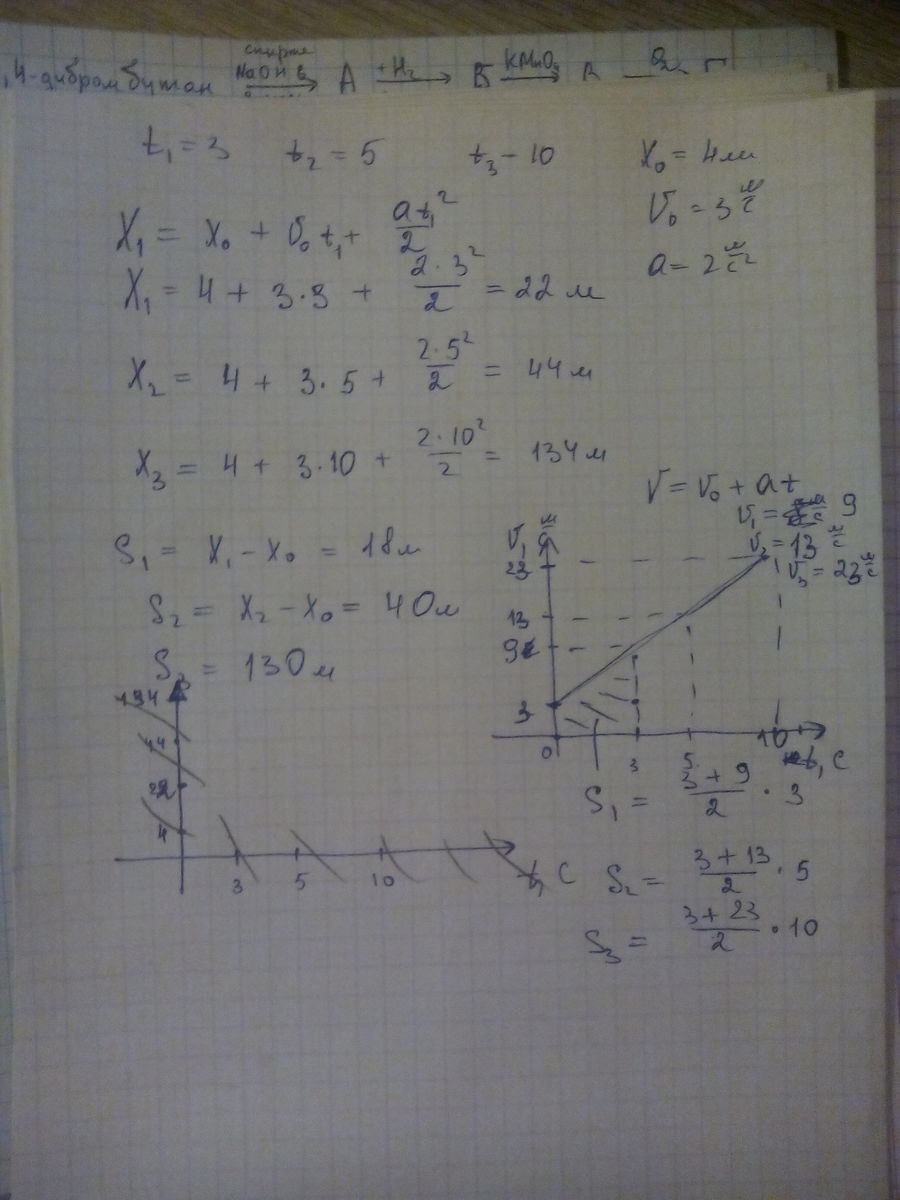 ,4-дибромбутан NaOH в спирте → A +H₂ → Б KMnO₄ → В → Г
t₁ = 3 t₂ = 5 t₃ – 10 x₀ = 4м
V₀ = 3 м/с
X₁ = x₀ + V₀ t₁ + at₁²/2
a = 2 м/с²
X₁ = 4 + 3·3 + 2·3²/2 = 22 м
X₂ = 4 + 3·5 + 2·5²/2 = 44 м
X₃ = 4 + 3·10 + 2·10²/2 = 134 м
V = V₀ + at
V₁ = 9
V₂ = 13 м/с
V₃ = 23 м/с
S₁ = X₁ – X₀ = 18м
S₂ = X₂ – X₀ = 40м
S₃ = 130м
V, м/с
23
13
9
3
0 3 5 10 t, c
134
44
22
4
3 5 10 t, c
S₁ = 3 + 9/2 · 3
S₂ = 3 + 13/2 · 5
S₃ = 3 + 23/2 · 10